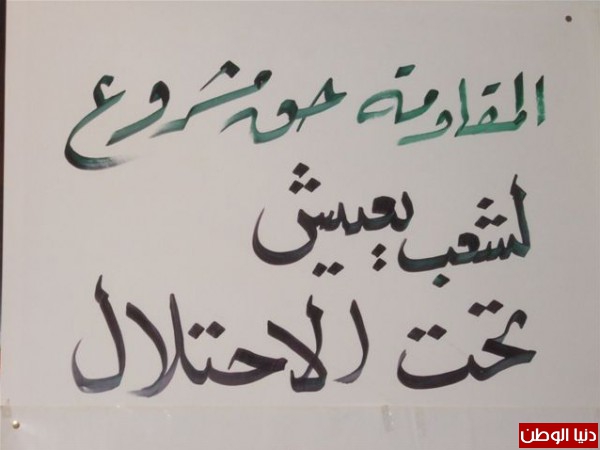 المقاومة حق مشروع
لشعب يعيش
تحت الاحتلال
دنيا الوطن